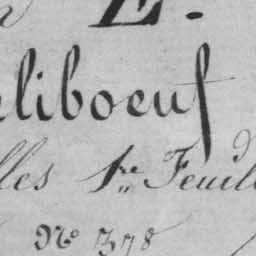 E.
eliboeuf
lles 1re Feuil
No 378